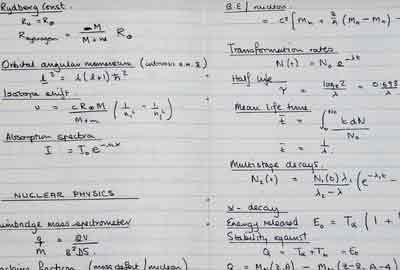 Rydberg Const.
R∞ = R∞
R hydrogen = M / M+m R∞
Orbital angular momentum (intrinsic
l² = l(l+1)ħ²
Isotope shift.
υ = cR∞M / M+m (1/n² - 1/n²)
Absorption spectra
I = I₀e
NUCLEAR PHYSICS
mass spectrometer
q/m = 2V / B²DS
fraction (mass defect/nucleon)
B.E/nucleon
= c² [Mn + (Mn - Mn) -
Transformation rates
N(t) = N₀e^-λt
Half life
τ = loge2 / λ = 0.693
Mean life time
t̄ = ∫ t dN / N₀
t̄ = 1/λ
Multistage decays.
N₂(t) = N₁(0)λ₁ / λ₂-λ (e^-λ₁t -
α-decay
Energy released E₀ = Tα (1 +
Stability against
Q = Tα + Th = E₀
Q = (Z,A) - (Z-2, A-4)